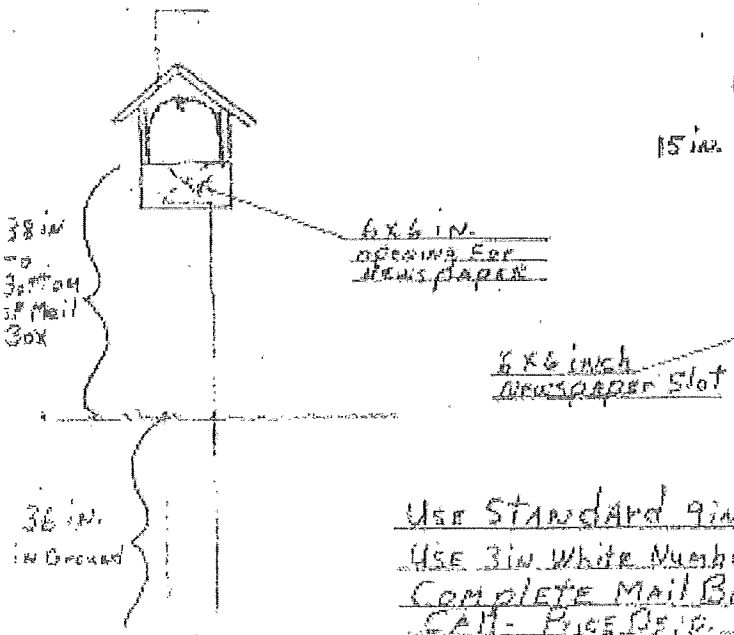 15 in.
6 X 6 in.
opening For
Newspaper
in
to
Bottom
of Mail
Box
6 X 6 inch
Newspaper Slot
36 in.
in Ground
Use Standard 9in
Use 3in White Numb
Complete Mail B
Call -